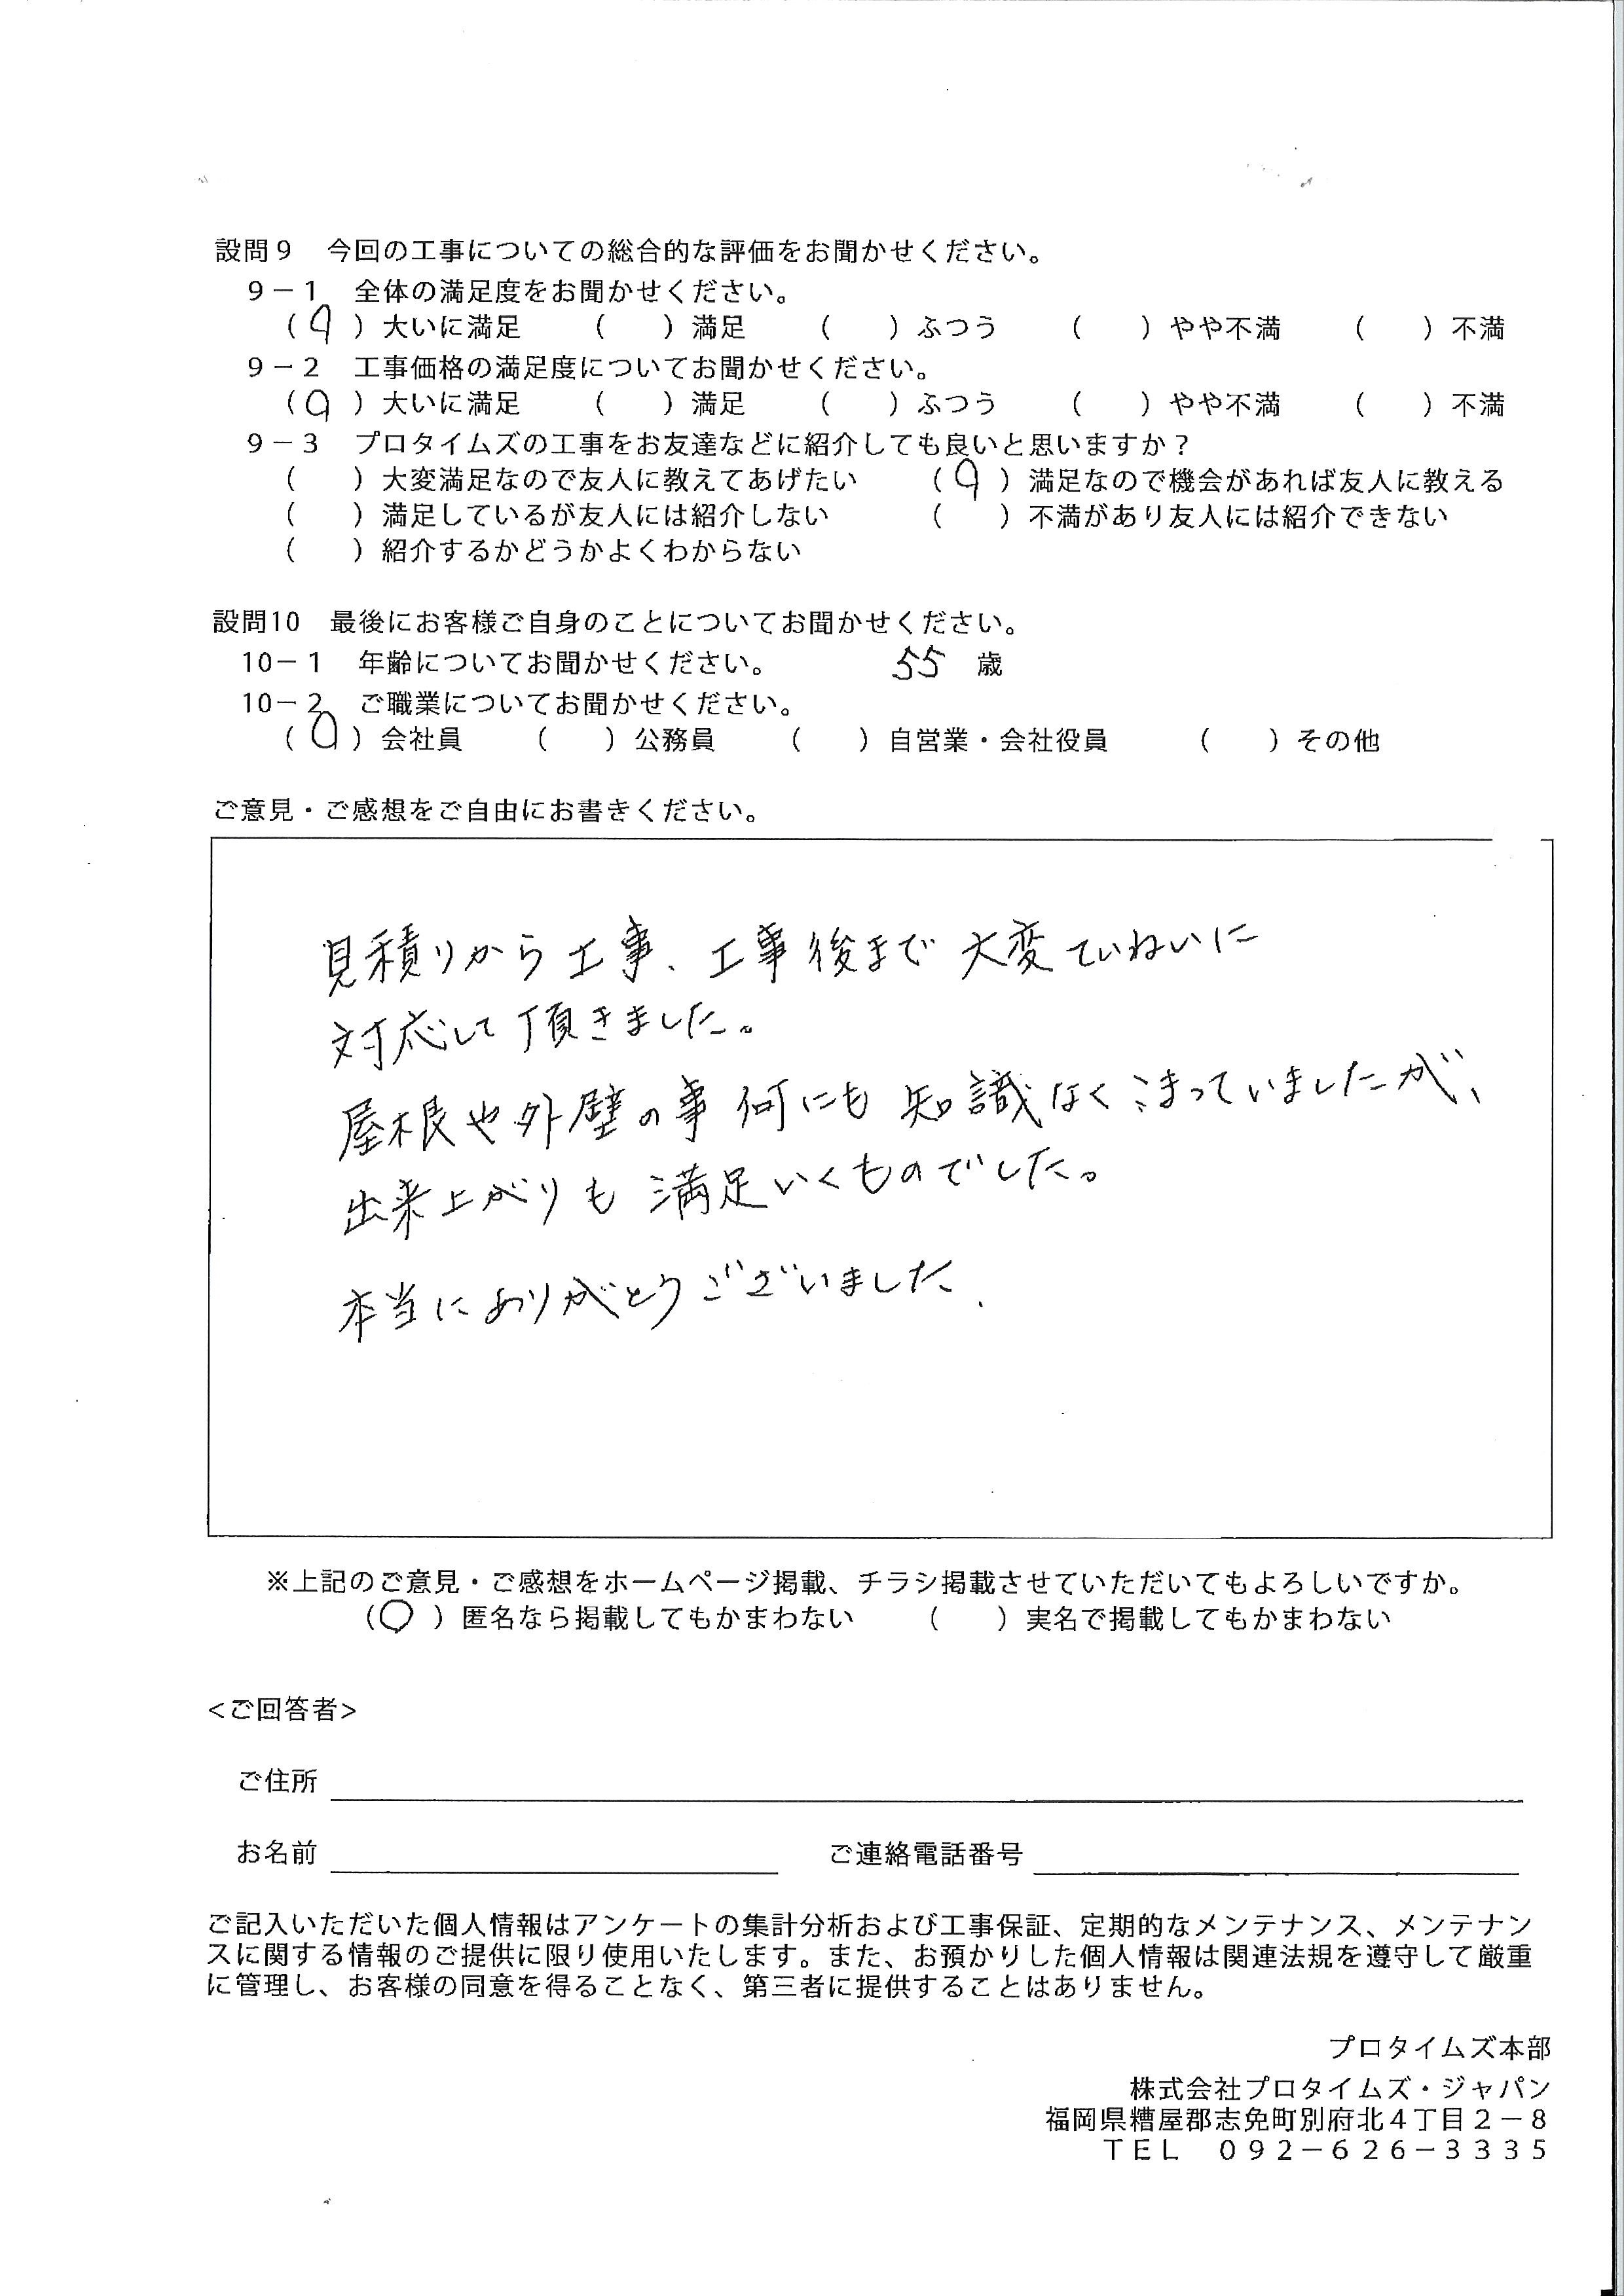 設問９　今回の工事についての総合的な評価をお聞かせください。
９－１　全体の満足度をお聞かせください。
（○）大いに満足　（　）満足　（　）ふつう　（　）やや不満　（　）不満
９－２　工事価格の満足度についてお聞かせください。
（○）大いに満足　（　）満足　（　）ふつう　（　）やや不満　（　）不満
９－３　プロタイムズの工事をお友達などに紹介しても良いと思いますか？
（　）大変満足なので友人に教えてあげたい　（○）満足なので機会があれば友人に教える
（　）満足しているが友人には紹介しない　（　）不満があり友人には紹介できない
（　）紹介するかどうかよくわからない
設問10　最後にお客様ご自身のことについてお聞かせください。
10－１　年齢についてお聞かせください。　55　歳
10－２　ご職業についてお聞かせください。
（○）会社員　（　）公務員　（　）自営業・会社役員　（　）その他
ご意見・ご感想をご自由にお書きください。
見積りから工事、工事後まで大変ていねいに
対応して頂きました。
屋根や外壁の事何にも知識なくこまっていましたが、
出来上がりも満足いくものでした。
本当にありがとうございました.
※上記のご意見・ご感想をホームページ掲載、チラシ掲載させていただいてもよろしいですか。
（○）匿名なら掲載してもかまわない　（　）実名で掲載してもかまわない
<ご回答者>
ご住所
お名前　ご連絡電話番号
ご記入いただいた個人情報はアンケートの集計分析および工事保証、定期的なメンテナンス、メンテナン
スに関する情報のご提供に限り使用いたします。また、お預かりした個人情報は関連法規を遵守して厳重
に管理し、お客様の同意を得ることなく、第三者に提供することはありません。
プロタイムズ本部
株式会社プロタイムズ・ジャパン
福岡県糟屋郡志免町別府北４丁目２－８
ＴＥＬ　０９２－６２６－３３３５